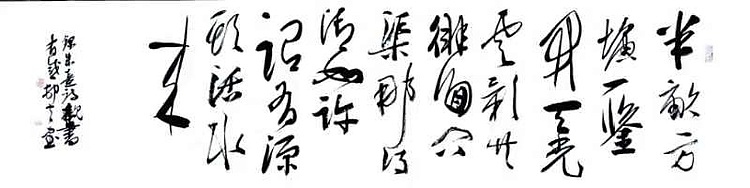 半畝方
塘一鑒
開天光
雲影共
徘徊問
渠那得
清如許
謂有源
頭活水
來
錄朱熹詩觀書
有感